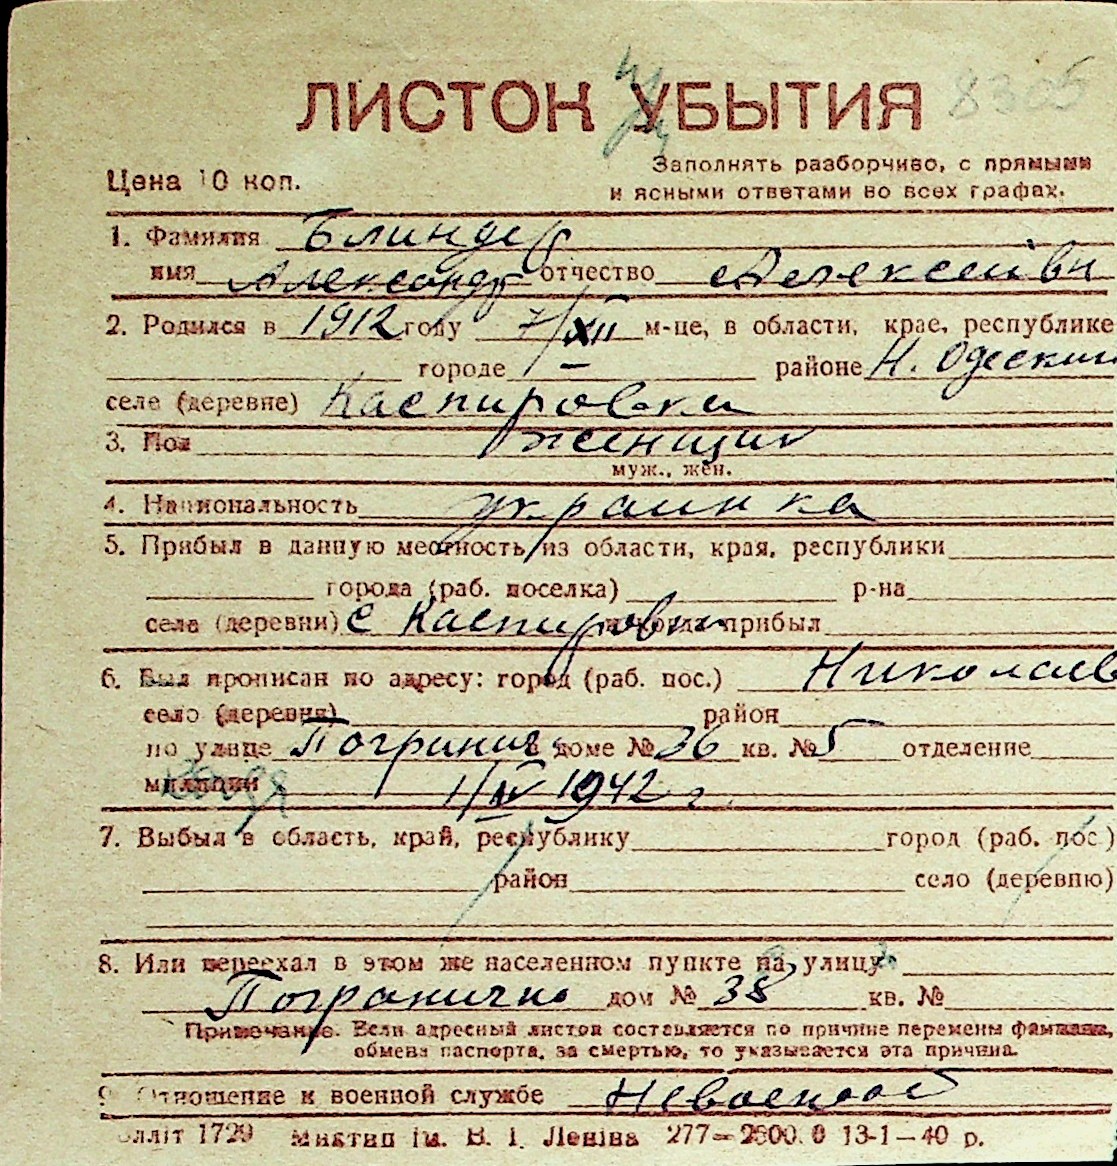 8305
ЛИСТОК УБЫТИЯ
Цена 10 коп.
Заполнять разборчиво, с прямыми
и ясными ответами во всех графах.
1. Фамилия Блиндер
имя Александр отчество Алексеивн
2. Родился в 1912 году 7/XII м-це, в области, крае, республике
городе — районе Н. Одеский
селе (деревне) Каспировка
3. Пол женщин
муж., жен.
4. Национальность украинка
5. Прибыл в данную местность из области, края, республики
города (раб. поселка) р-на
села (деревни) с Каспировки и когда прибыл
6. Был прописан по адресу: город (раб. пос.) Николаев
село (деревня) район
по улице Погранич в доме № 36 кв. № 5 отделение
милиции 1/IV 1942 г.
7. Выбыл в область, край, республику город (раб. пос.)
район село (деревню)
8. Или переехал в этом же населенном пункте на улицу
Погранично дом № 38 кв. №
Примечание. Если адресный листок составляется по причине перемены фамилии,
обмена паспорта, за смертью, то указывается эта причина.
9. Отношение к военной службе Невоеноой
Оллiт 1729 Миктип iм. В. I. Ленiна 277—2600.0 13-1—40 р.